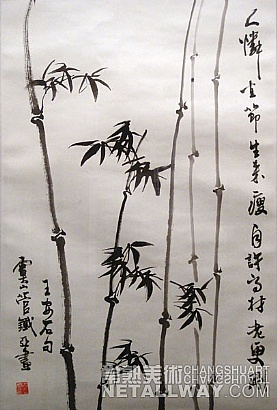 人憐直節生来瘦自許高材老更剛
王安石句
虞山管鐵亞畫
常熟美術 CHANGSHUART
NETALLWAY.COM